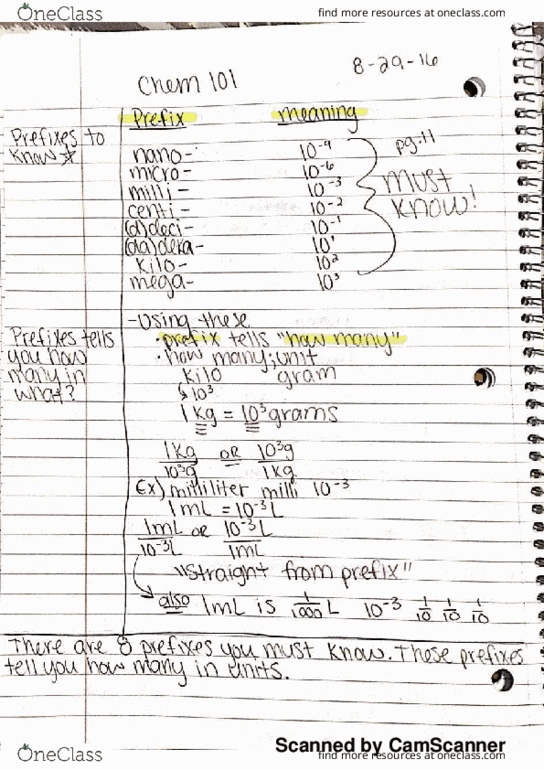 OneClass find more resources at oneclass.com
8-29-16
Chem 101
Prefix meaning
Prefixes to
know
nano- 10⁻⁹
micro- 10⁻⁶
milli- 10⁻³
centi- 10⁻²
(d)deci- 10⁻¹
(da)deka- 10¹
kilo- 10²
mega- 10³
pg:11
must
know!
-Using these
Prefixes tells
you how
many in
what?
·prefix tells "how many"
·how many; unit
kilo gram
↳10³
1kg = 10³grams
1kg/10³g OR 10³g/1kg
Ex) milliliter milli 10⁻³
1mL = 10⁻³L
1mL/10⁻³L or 10⁻³L/1mL
"straight from prefix"
also 1mL is 1/1000 L 10⁻³ 1/10 1/10 1/10
There are 8 prefixes you must know. These prefixes
tell you how many in units.
Scanned by CamScanner
OneClass find more resources at oneclass.com